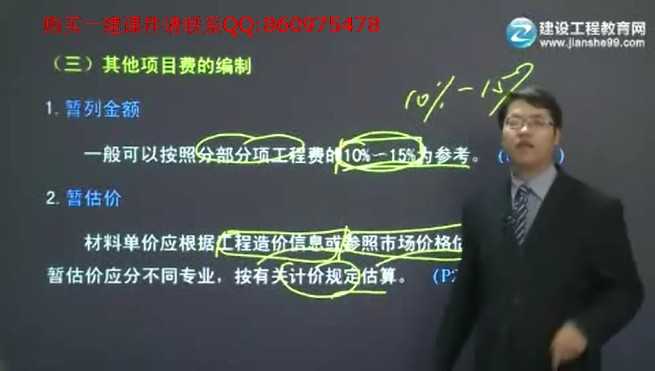 购买一建课件请联系QQ:860975478
建设工程教育网
www.jianshe99.com
(三)其他项目费的编制
10%-15%
1.暂列金额
一般可以按照分部分项工程费的10%-15%为参考。
2.暂估价
材料单价应根据工程造价信息或参照市场价格估
暂估价应分不同专业,按有关计价规定估算。 (P2